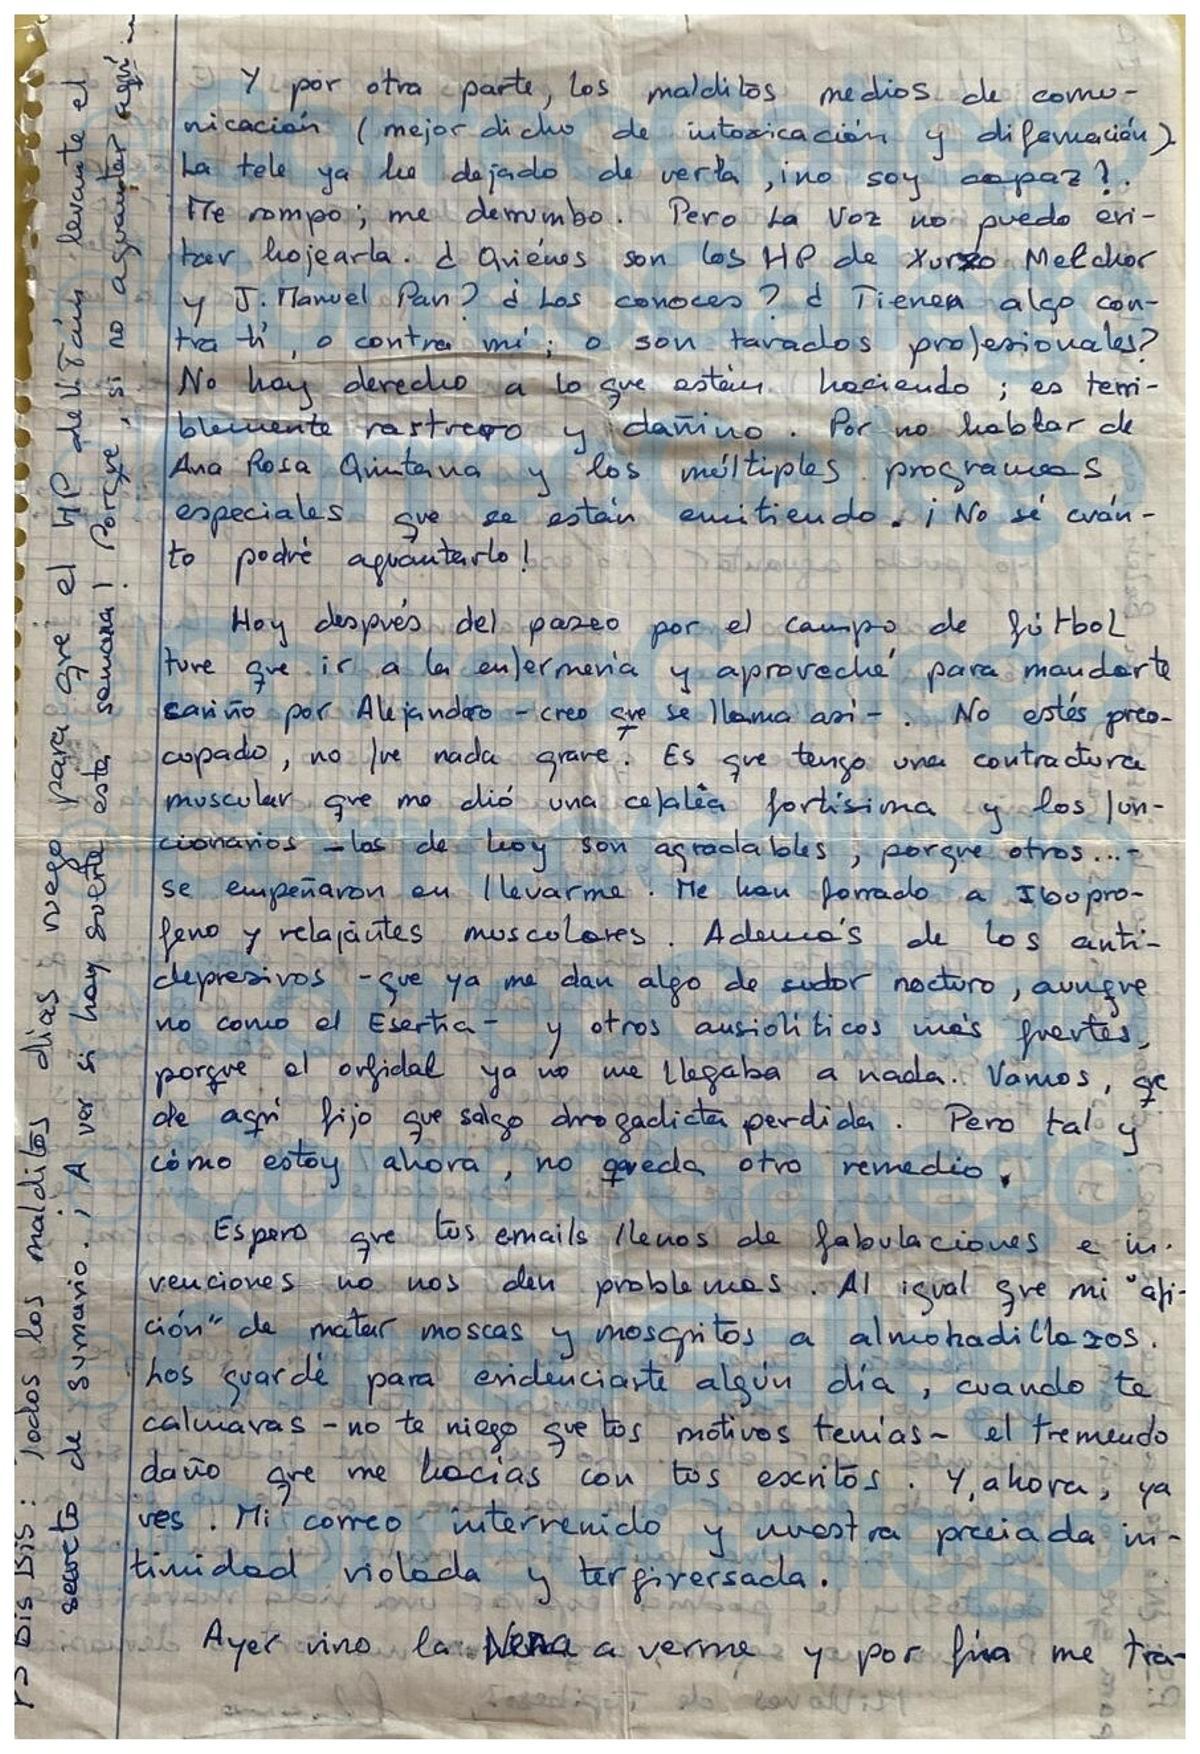 Y por otra parte, los malditos medios de comu-
nicación (mejor dicho de intoxicación y difamación).
La tele ya he dejado de verla, ¡no soy capaz!.
Me rompo; me derrumbo. Pero La Voz no puedo evi-
tar hojearla. ¿Quiénes son los HP de Xurxo Melchor
y J. Manuel Pan? ¿Los conoces? ¿Tienen algo con-
tra ti, o contra mí; o son tarados profesionales?
No hay derecho a lo que están haciendo; es terri-
blemente rastrero y dañino. Por no hablar de
Ana Rosa Quintana y los múltiples programas
especiales que se están emitiendo. ¡No sé cuán-
to podré aguantarlo!
Hoy después del paseo por el campo de fútbol
tuve que ir a la enfermería y aproveché para mandarte
cariño por Alejandro - creo que se llama así -. No estés preo-
cupado, no fue nada grave. Es que tengo una contractura
muscular que me dió una cefaléa fortísima y los fun-
cionarios - los de hoy son agradables, porque otros...-
se empeñaron en llevarme. Me han forrado a Ibupro-
feno y relajantes musculares. Además de los anti-
depresivos - que ya me dan algo de sudor nocturo, aunque
no como el Esertia - y otros ansiolíticos más fuertes,
porque el orfidal ya no me llegaba a nada. Vamos, que
de aquí fijo que salgo drogadicta perdida. Pero tal y
cómo estoy ahora, no queda otro remedio.
Espero que tus emails llenos de fabulaciones e in-
venciones no nos den problemas. Al igual que mi "afi-
ción" de matar moscas y mosquitos a almohadillazos.
Los guardé para evidenciarte algún día, cuando te
calmaras - no te niego que tus motivos tenías - el tremendo
daño que me hacías con tus escritos. Y, ahora, ya
ves. Mi correo intervenido y nuestra preciada in-
timidad violada y tergiversada.
Ayer vino la Nena a verme y por fin me tra-
PS BIS BIS: Todos los malditos días ruego para que el HP del Taín levante el
secreto de sumario. ¡A ver si hay suerte esta semana! Porque, si no aguantar aquí...
@CorreoGallego